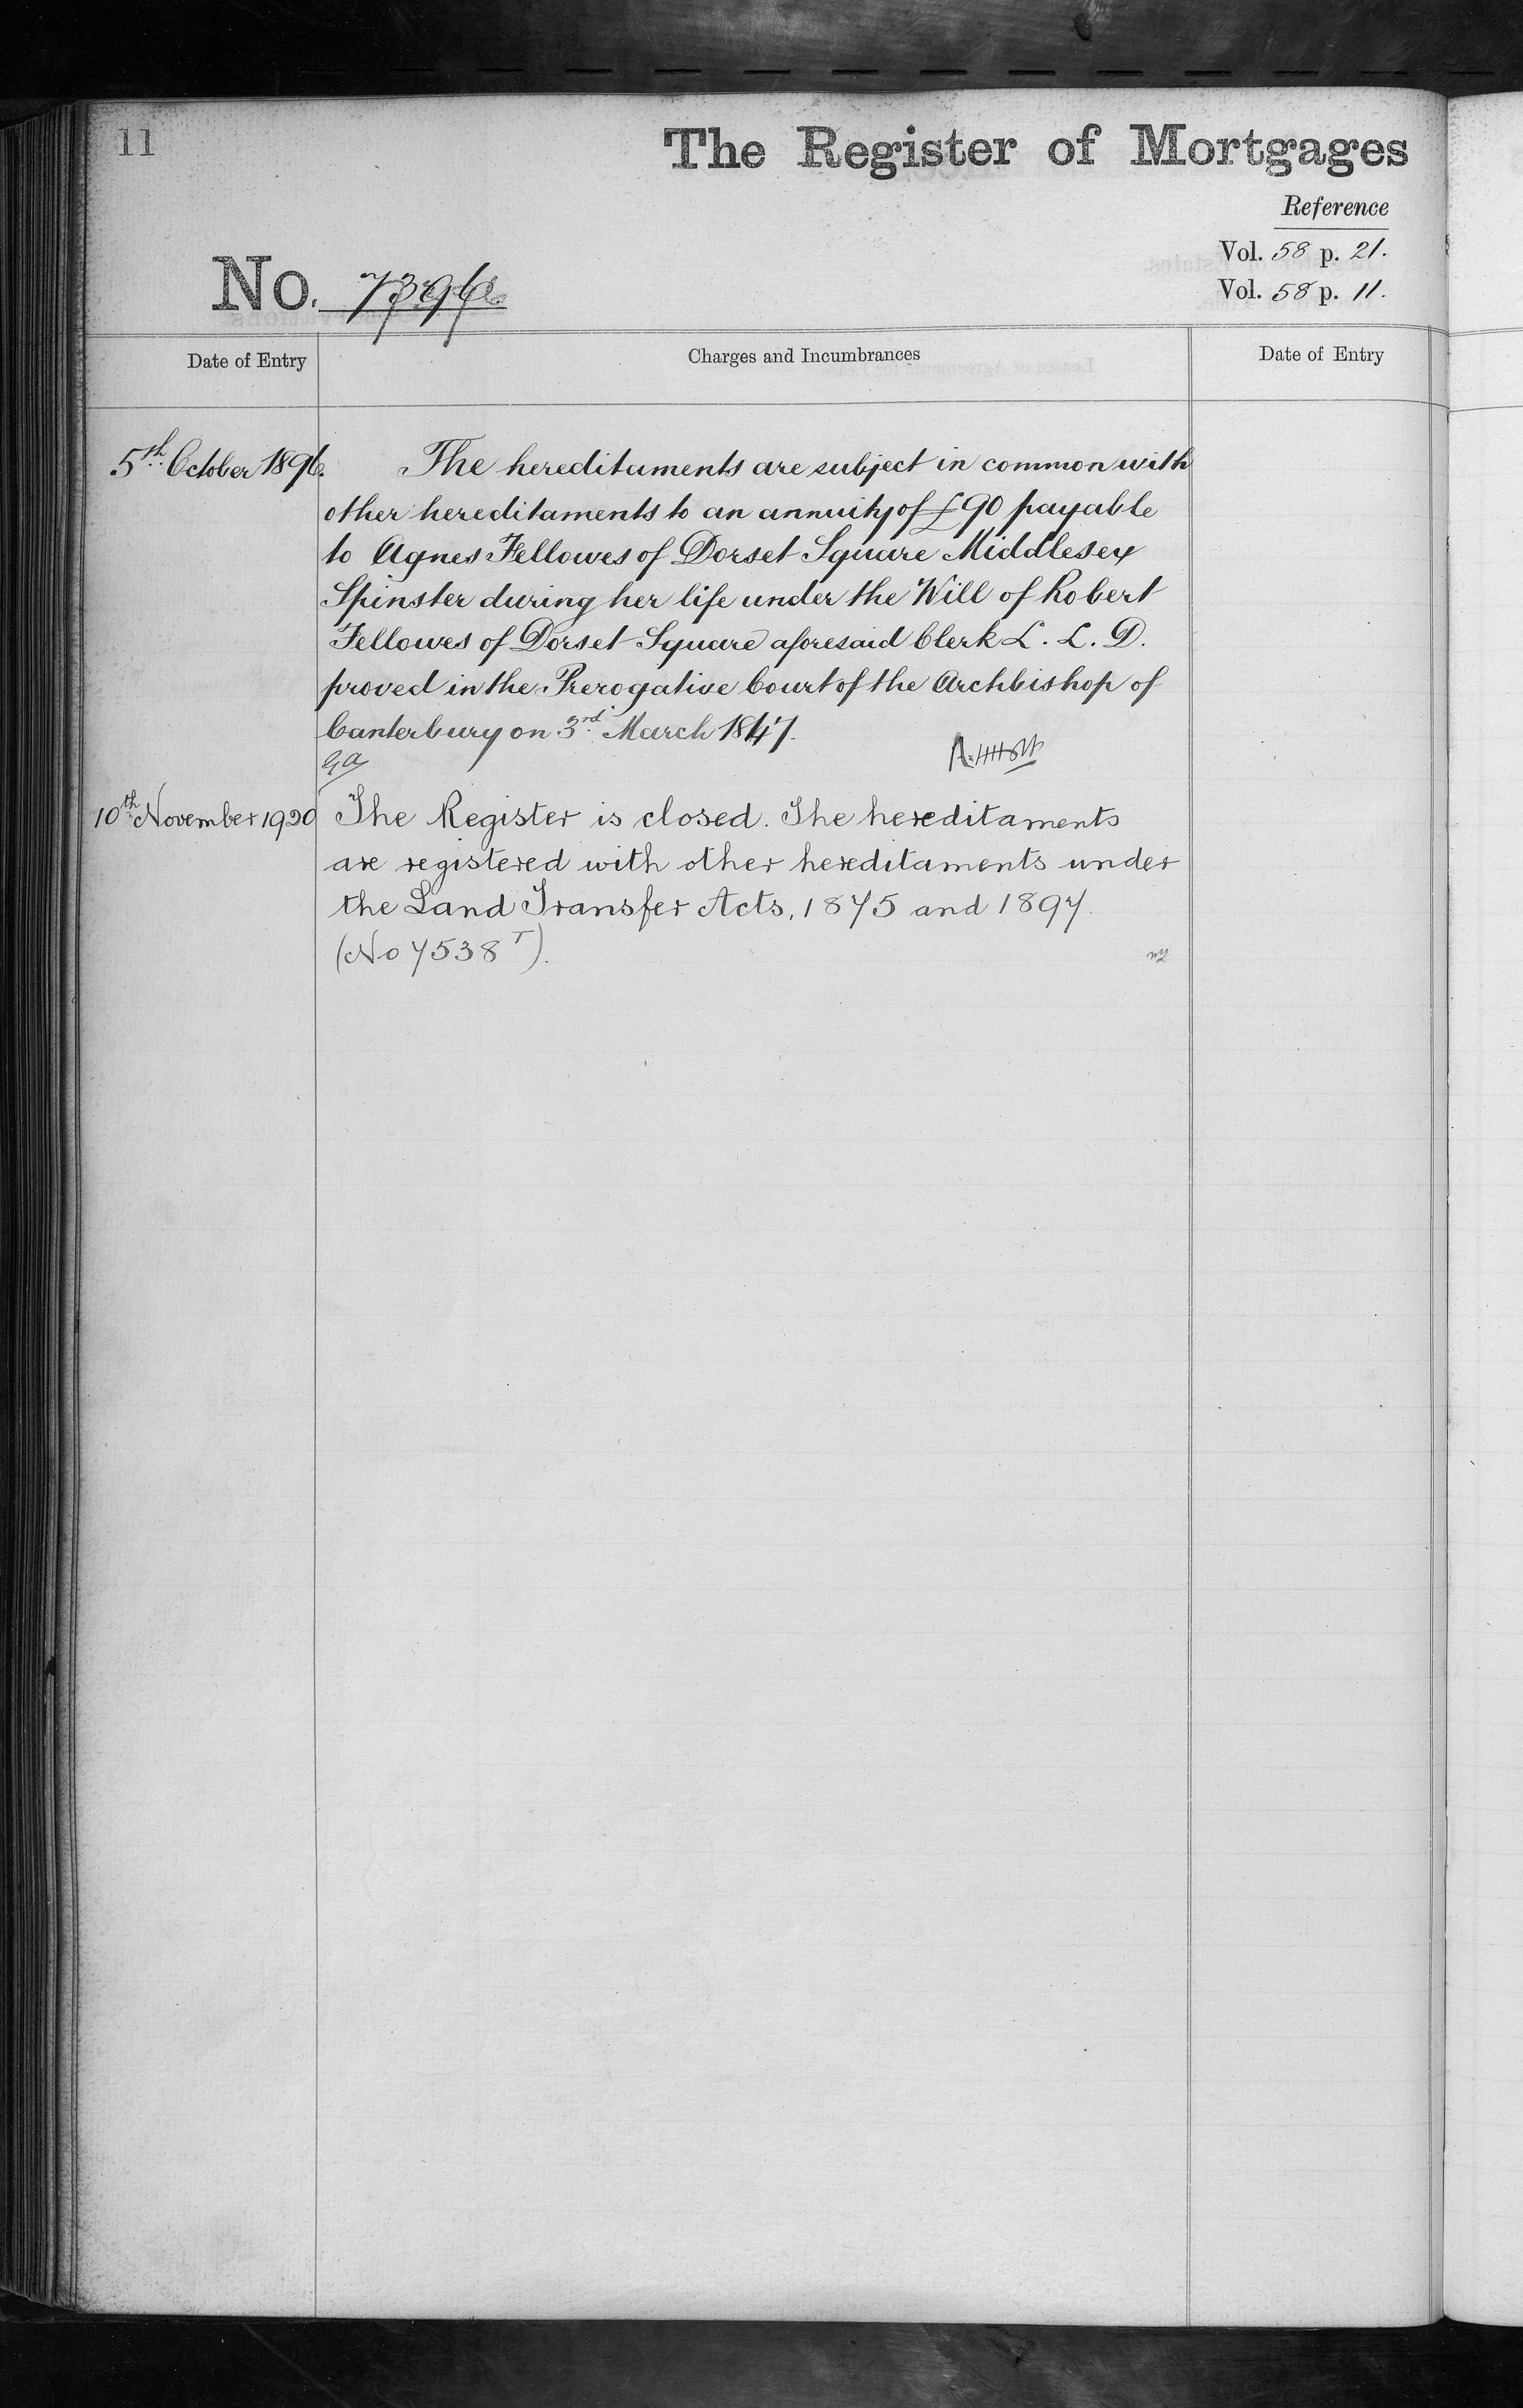 11
The Register of Mortgages
Reference
Vol. 58 p. 21.
Vol. 58 p. 11.
No.
Date of Entry
Charges and Incumbrances
Date of Entry
5th October 1896.
The hereditaments are subject in common with
other hereditaments to an annuity of £90 payable
to Agnes Fellowes of Dorset Square Middlesex
Spinster during her life under the Will of Robert
Fellowes of Dorset Square aforesaid Clerk L. L. D.
proved in the Prerogative Court of the Archbishop of
Canterbury on 3rd March 1847.
10th November 1920
The Register is closed. The hereditaments
are registered with other hereditaments under
the Land Transfer Acts, 1875 and 1897.
(No 7538 T).